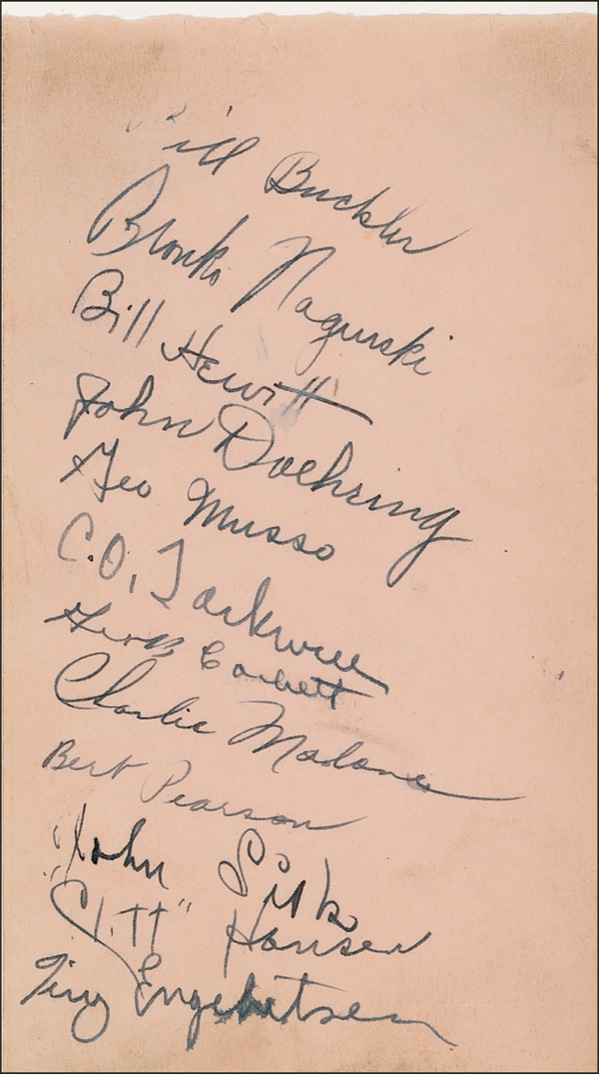 Bill Buckler
Bronko Nagurski
Bill Hewitt
John Doehring
Geo Musso
C.O. Tackwell
Corbett
Charlie Malone
Bert Pearson
"John Sisk
"Cliff" Hansen
Tiny Engebretsen